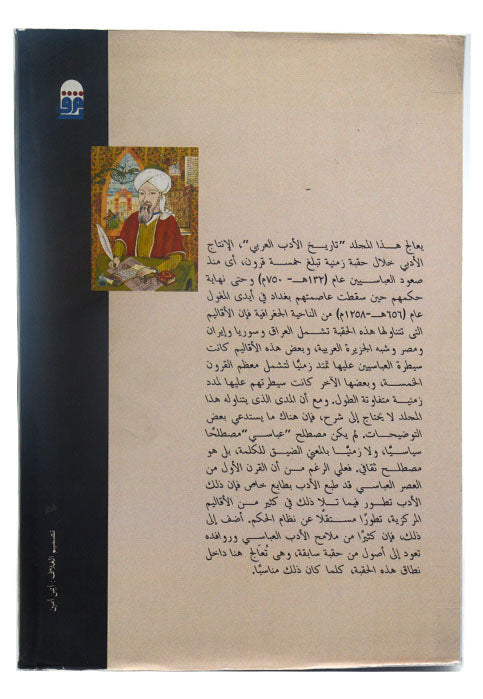 يعالج هذا المجلد "تاريخ الأدب العربي"، الإنتاج
الأدبي خلال حقبة زمنية تبلغ خمسة قرون، أى منذ
صعود العباسيين عام (١٣٢هـ- ٧٥٠م) وحتى نهاية
حكمهم حين سقطت عاصمتهم بغداد في أيدى المغول
عام (٦٥٦هـ-١٢٥٨م) من الناحية الجغرافية فإن الأقاليم
التى تتناولها هذه الحقبة تشمل العراق وسوريا وإيران
ومصر وشبه الجزيرة العربية، وبعض هذه الأقاليم كانت
سيطرة العباسيين عليها تمتد زمنيًا لتشمل معظم القرون
الخمسة، وبعضها الآخر كانت سيطرتهم عليها لمدد
زمنية متفاوتة الطول. ومع أن المدى الذى يتناوله هذا
المجلد لا يحتاج إلى شرح، فإن هناك ما يستدعي بعض
التوضيحات. لم يكن مصطلح "عباسي" مصطلحًا
سياسيًا، ولا زمنيًا بالمعنى الضيق للكلمة، بل هو
مصطلح ثقافي. فعلي الرغم من أن القرن الأول من
العصر العباسي قد طبع الأدب بطابع خاص فإن ذلك
الأدب تطور فيما تلا ذلك في كثير من الأقاليم
المركزية، تطورًا مستقلًا عن نظام الحكم. أضف إلى
ذلك، فإن كثيرًا من ملامح الأدب العباسي وروافده
تعود إلى أصول من حقبة سابقة، وهى تُعالج هنا داخل
نطاق هذه الحقبة، كلما كان ذلك مناسبًا.
تصميم الغلاف: أيمن أمين